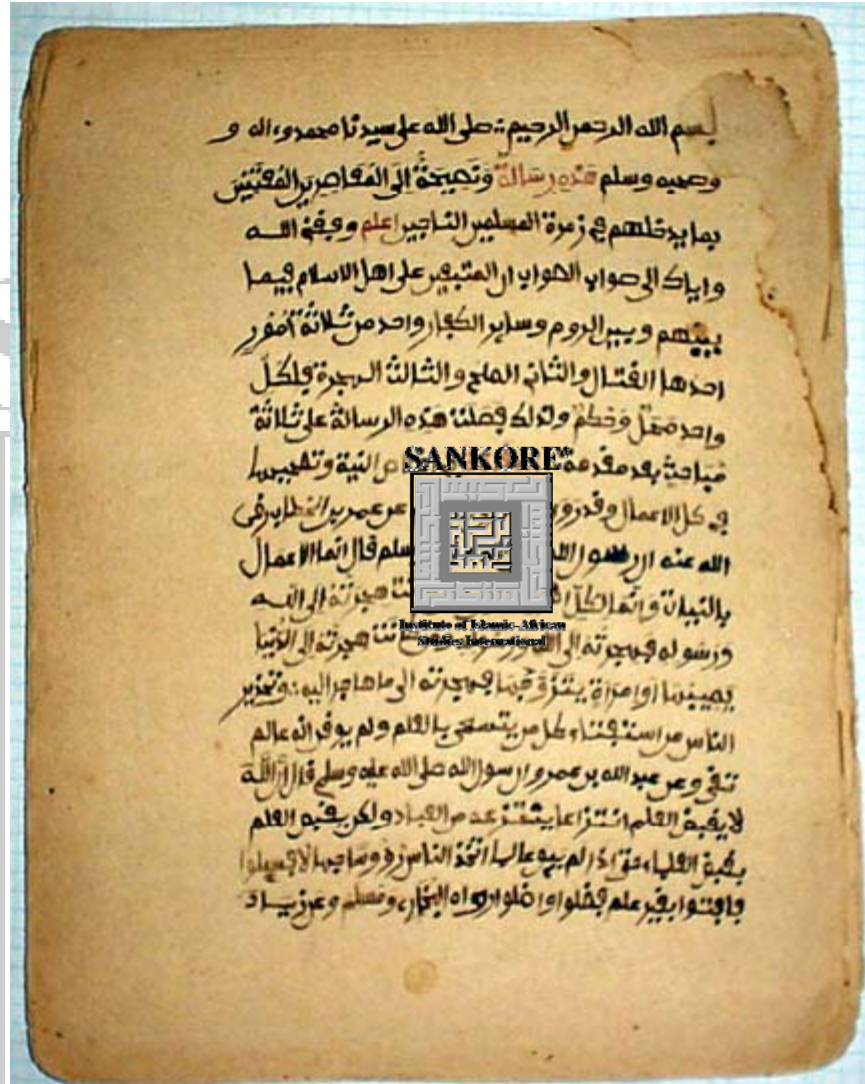 بسم الله الرحمن الرحيم صلى الله على سيدنا محمد وءاله و
وصحبه وسلم هذه رسالة ونصيحة إلى المعاصرين المعتنين
بما يدخلهم في زمرة المسلمين الناجين اعلم وفقني الله
واياك الى صواب الصواب ان المتعين على اهل الاسلام فيما
بينهم وبين الروم وساير الكفار واحد من ثلاثة أمور
احدها القتال والثاني الصلح والثالث الهجرة فلكل
واحد محل وحكم ولذلك فصلت هذه الرسالة على ثلاثة
مباحث بعد مقدمة
SANKORE'
النية وتصحيحها
في كل الاعمال وقد روي
عن عمر بن الخطاب رضي
الله عنه ان رسول الله
وسلم قال انما الاعمال
بالنيات وانما لكل
هجرته الى الله
Institute of Islamic-African
Studies International
ورسوله فهجرته الى
هجرته الى الدنيا
يصيبها أو امرأة يتزوجها فهجرته الى ما هاجر اليه وتحذير
الناس من استفتاء كل من يتسمى بالعلم ولم يعرف انه عالم
تقي وعن عبد الله بن عمرو ان رسول الله صلى الله عليه وسلم قال ان الله
لا يقبض العلم انتزاعا ينتزعه من العباد ولكن يقبض العلم
بقبض العلماء حتى اذا لم يبق عالما اتخذ الناس رؤوسا جهالا فسيلوا
فافتوا بغير علم فضلوا واضلوا رواه البخاري ومسلم وعن زياد